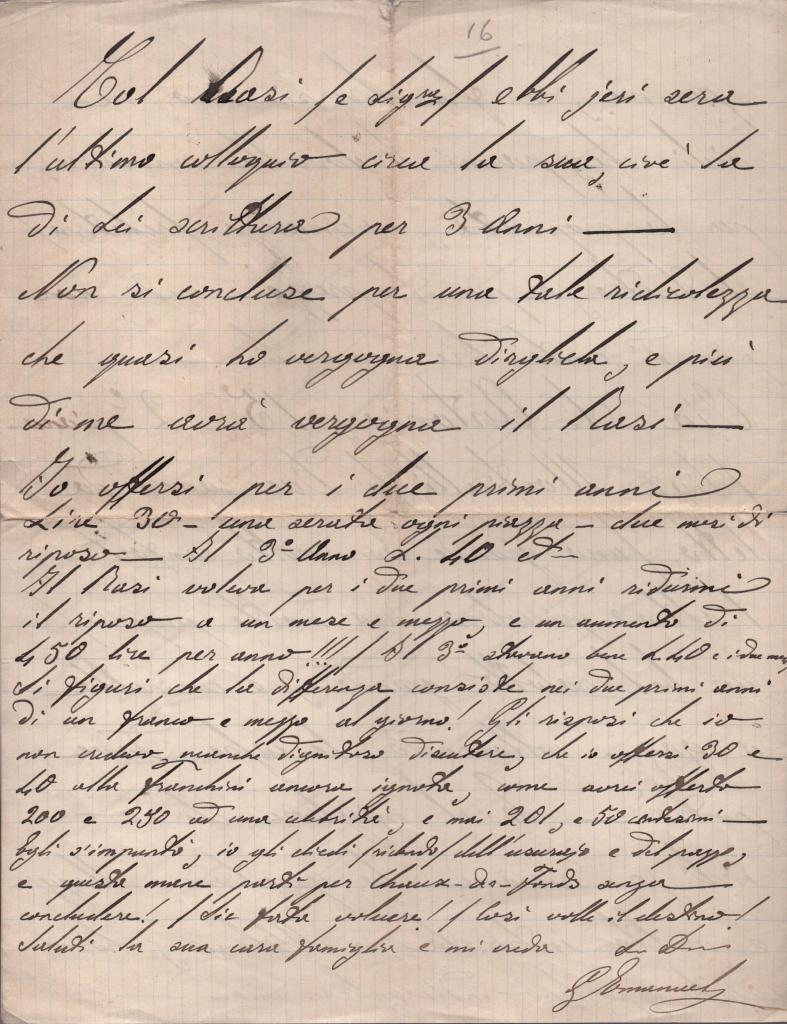 16
Col Rasi (e Sigra) ebbi jeri sera
l'ultimo colloquio circa la sua, cioè la
di Lei scrittura per 3 Anni —
Non si concluse per una tale ridicolezza
che quasi ho vergogna dirgliela, e più
di me avrà vergogna il Rasi —
Io offersi per i due primi anni
Lire 30 — una serata ogni piazza — due mesi di
riposo — Il 3º Anno L. 40
Il Rasi voleva per i due primi anni ridurmi
il riposo a un mese e mezzo, e un aumento di
450 lire per anno!!!! / Il 3º stavano bene L 40 e i due mesi
Si figuri che la differenza consiste nei due primi anni
di un franco e mezzo al giorno! Gli risposi che io
non credevo neanche dignitoso discutere, che io offersi 30 e
40 alla Franchini ancora ignota, come avrei offerto
200 e 250 ad una celebrità, e mai 201, e 50 centesimi —
Egli s'impuntò, io gli diedi (ridendo) dell'usurajo e del pazzo,
e questa mane partì per Chaux-de-Fonds senza
concludere! / Sic fata voluere! / Così volle il destino!
Saluti la sua cara famiglia e mi creda
G Emanuel